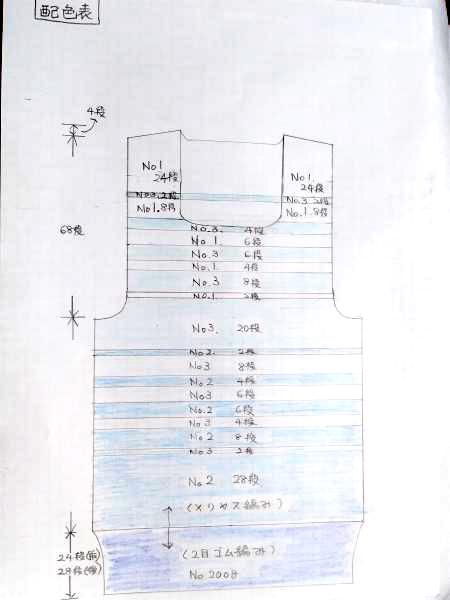 配色表
4段
No1
24段
No1.
24段
No3.2段
No3.2段
No1.8段
No.1.8段
No.3. 4段
68段
No1. 6段
No.3 6段
No.1. 4段
No.3 8段
No.1. 2段
No3. 20段
No2. 2段
No3 8段
No2 4段
No3 6段
No.2 6段
No.3 4段
No2 8段
No3 2段
No.2 28段
(メリヤス編み)
(2目ゴム編み)
No.2008